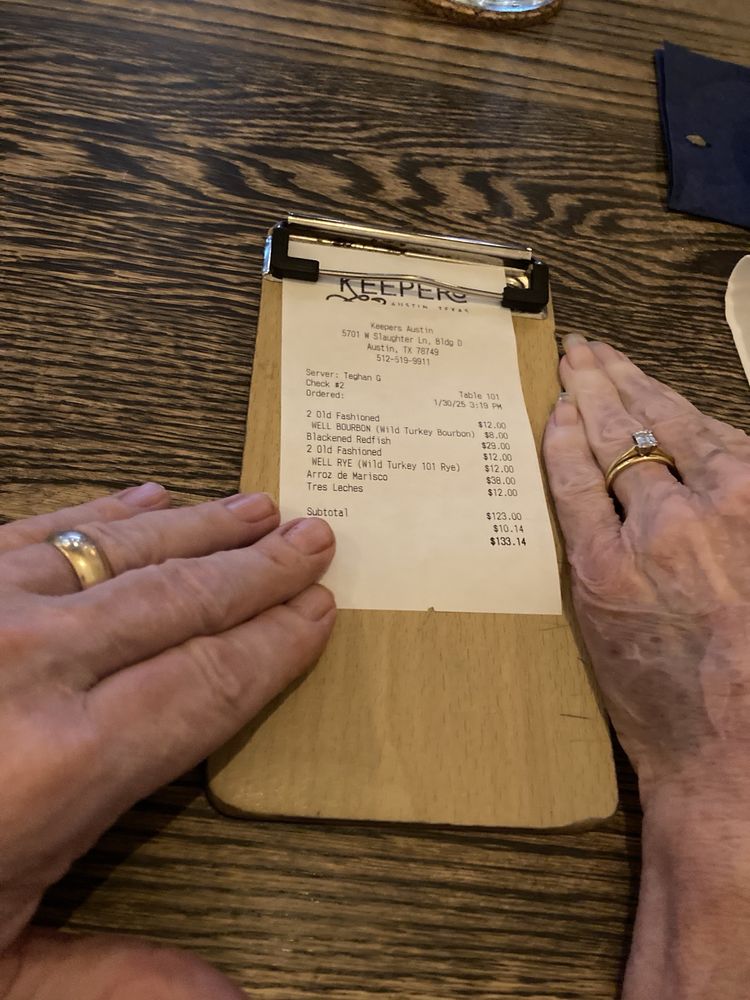 KEEPERS
AUSTIN, TEXAS
Keepers Austin
5701 W Slaughter Ln, Bldg D
Austin, TX 78749
512-519-9911
Server: Teghan G
Check #2 Table 101
Ordered: 1/30/25 3:19 PM
2 Old Fashioned $12.00
WELL BOURBON (Wild Turkey Bourbon) $8.00
Blackened Redfish $29.00
2 Old Fashioned $12.00
WELL RYE (Wild Turkey 101 Rye) $12.00
Arroz de Marisco $38.00
Tres Leches $12.00
Subtotal $123.00
$10.14
$133.14